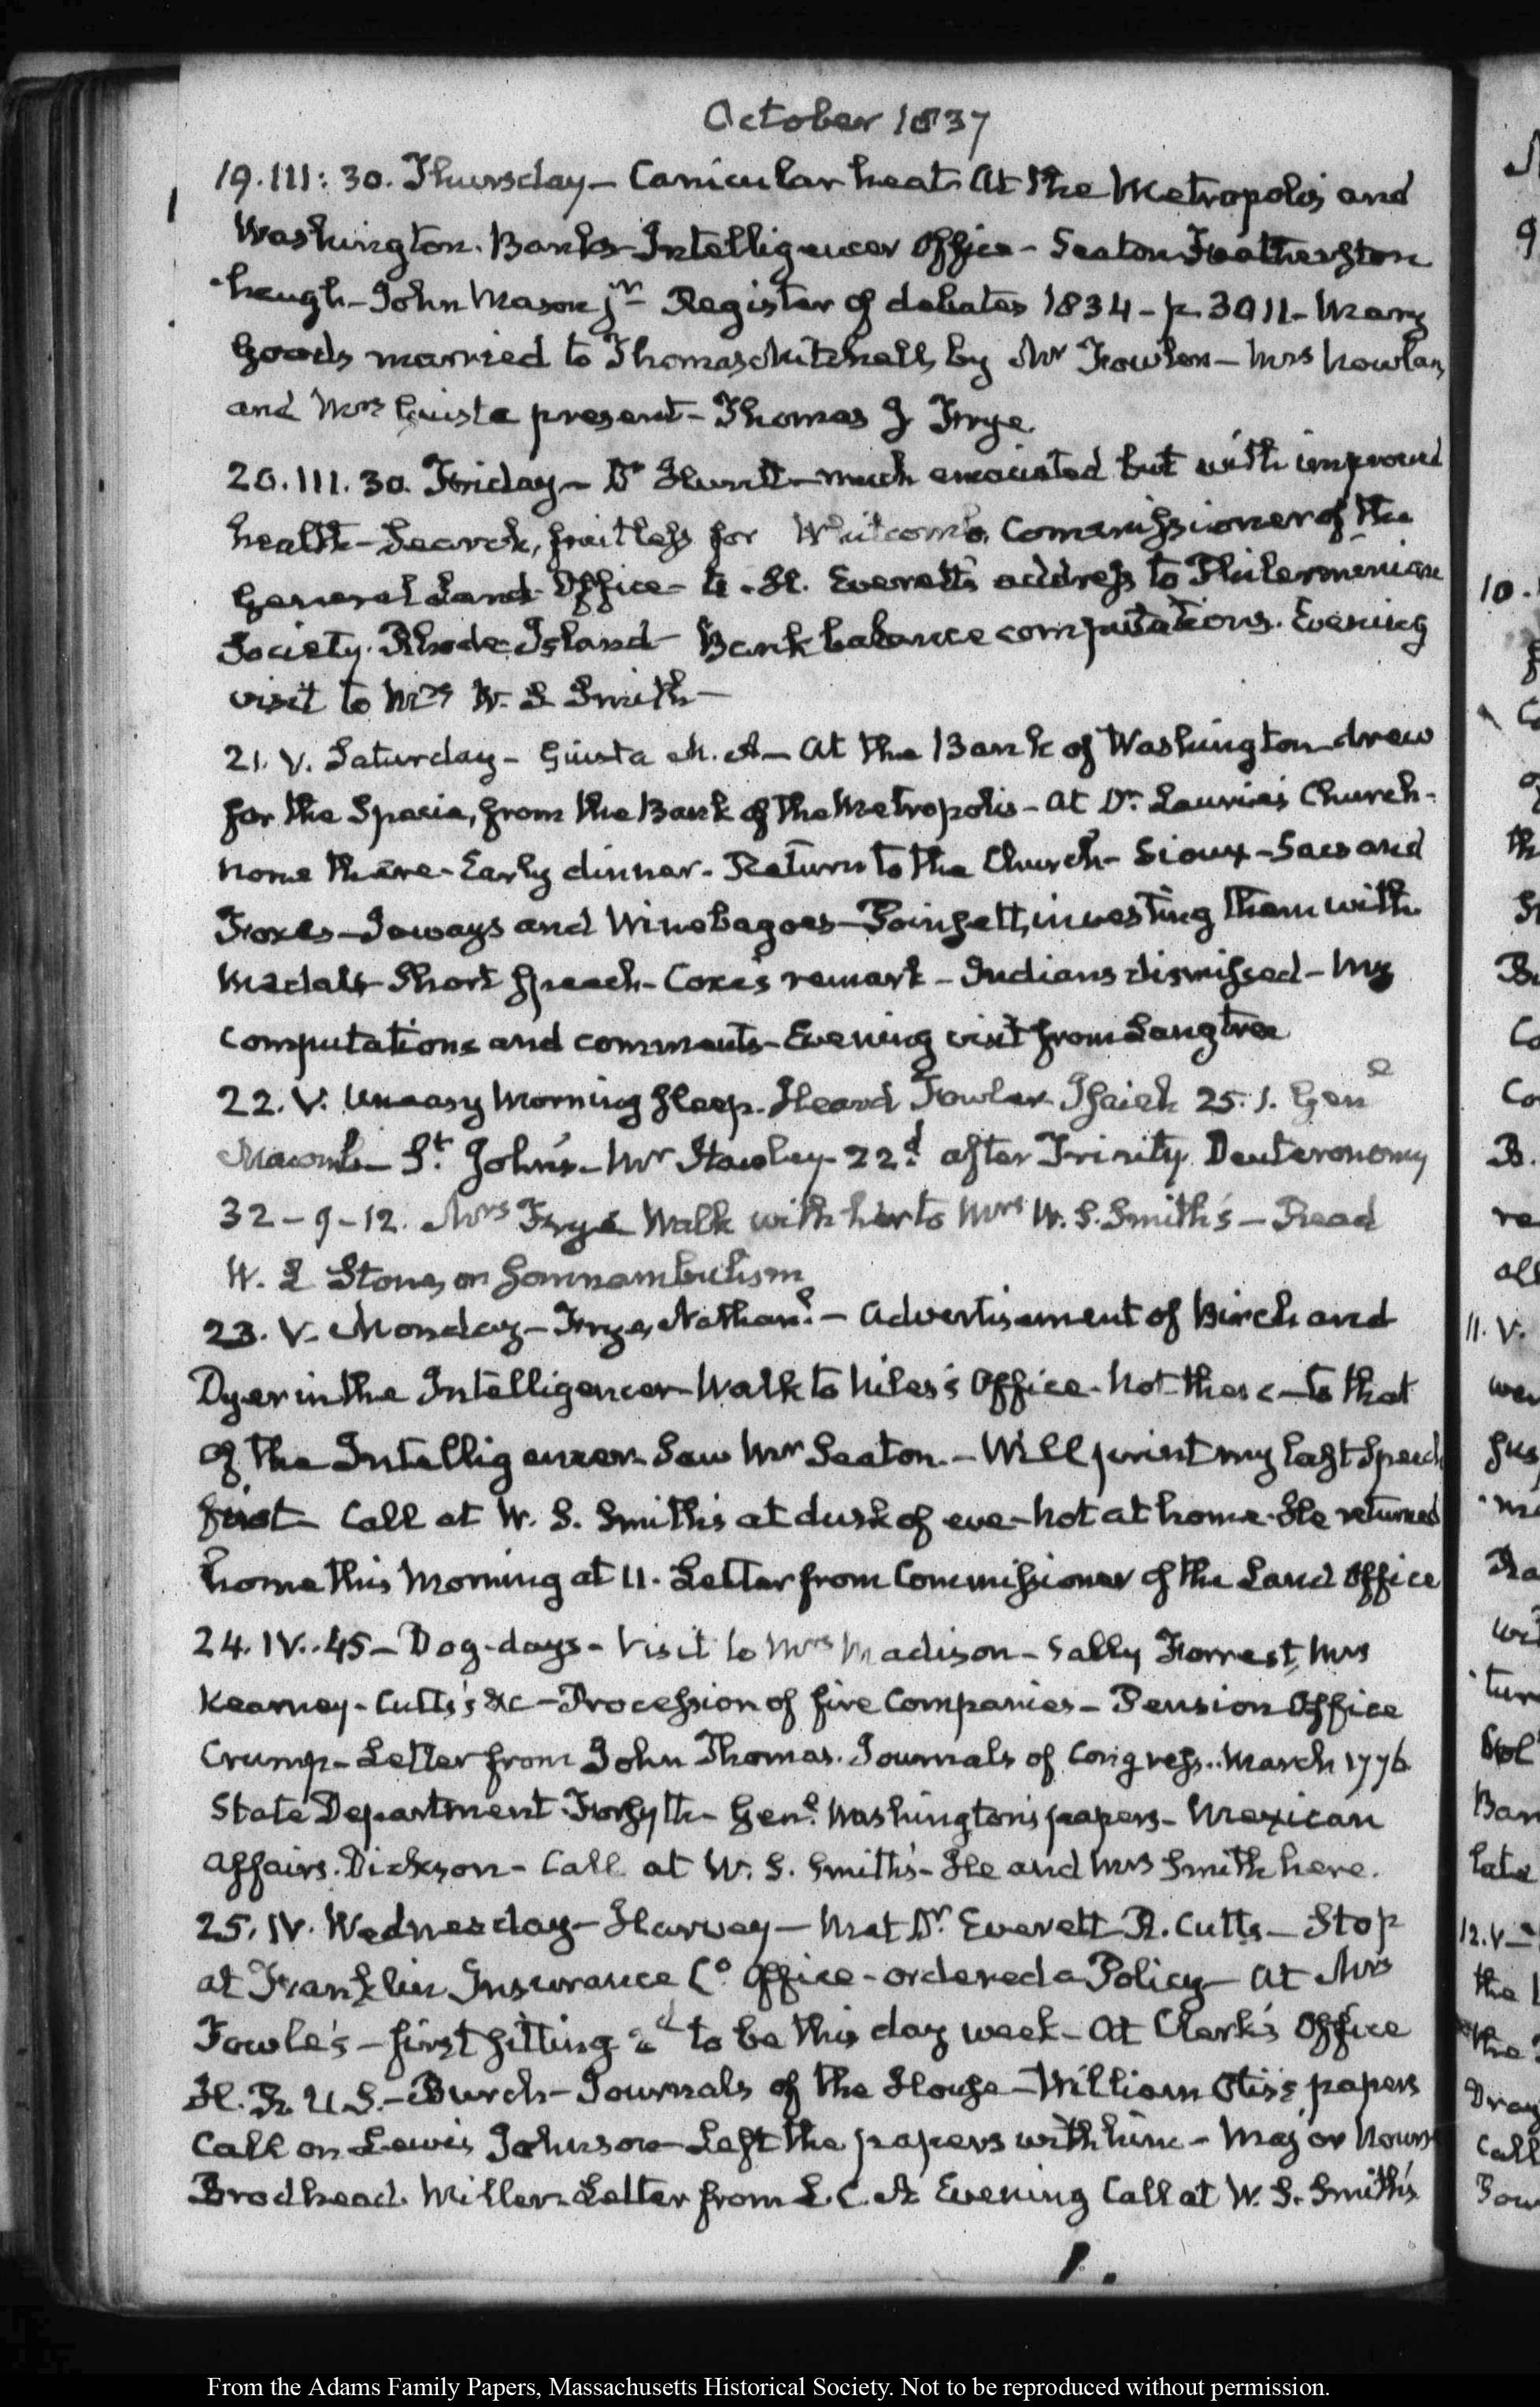 October 1837
19. III: 30. Thursday – Canicular heat. At the Metropolis and
Washington Banks – Intelligencer Office – Seaton Featherston
haugh – John Mason jr. Register of debates 1834 – p. 3011 – Mary
Goods married to Thomas Mitchell, by Mr Fowler – Mrs Nowlan,
and Mrs Giusta present – Thomas J Frye
20. III. 30. Friday – Dr Hunt – much emaciated but with improved
health – Search, fruitless for Whitcomb, Commissioner of the
General Land Office – A. H. Everett's address to Philermenian
Society. Rhode Island – Bank balance computations. Evening
visit to Mrs W. S. Smith –
21. V. Saturday – Giusta M. A – At the Bank of Washington drew
for the Specie, from the Bank of the Metropolis – At Dr. Laurie's Church –
none there – Early dinner. Return to the Church – Sioux – Sacs and
Foxes – Ioways and Winebagoes – Poinsett, investing them with
Medals – Short speech – Coxe's remark – Indians dismissed – My
computations and comments – Evening visit from Langtree
22. V. Uneasy Morning sleep. Heard Fowler Isaiah 25. 1. Genl
Macomb – St. John's – Mr Hawley 22d. after Trinity Deuteronomy
32 – 9 – 12. Mrs Frye Walk with her to Mrs W. S. Smith's – Read
W. L Stone, on Somnambulism
23. V. Monday – Frye, Nathanl. – Advertisement of Birch and
Dyer in the Intelligencer – Walk to Niles's Office – Not there – to that
of the Intelligencer. Saw Mr Seaton. – Will print my last Speech
first – Call at W. S. Smith's at dusk of eve – Not at home. He returned
home this Morning at 11. Letter from Commissioner of the Land Office
24. IV. 45 – Dog-days – Visit to Mrs Madison – Sally Forrest, Mrs
Kearney – Cutts's &c – Procession of fire Companies – Pension Office
Crump – Letter from John Thomas. Journals of Congress. March 1776
State Department. Forsyth – Genl. Washington's papers – Mexican
affairs. Dickson – Call at W. S. Smith's – He and Mrs Smith here.
25. IV. Wednesday – Harvey – Met Dr. Everett R. Cutts – Stop
at Franklin Insurance Co. Office – ordered a Policy – At Mrs
Fowle's – first sitting 2d to be this day week – At Clerk's Office
H. R. U.S. – Burch – Journals of the House – William Otis's papers
Call on Lewis Johnson – Left the papers with him – Major Nourse
Brodhead. Miller. Letter from L. C. A. Evening Call at W. S. Smith's
From the Adams Family Papers, Massachusetts Historical Society. Not to be reproduced without permission.